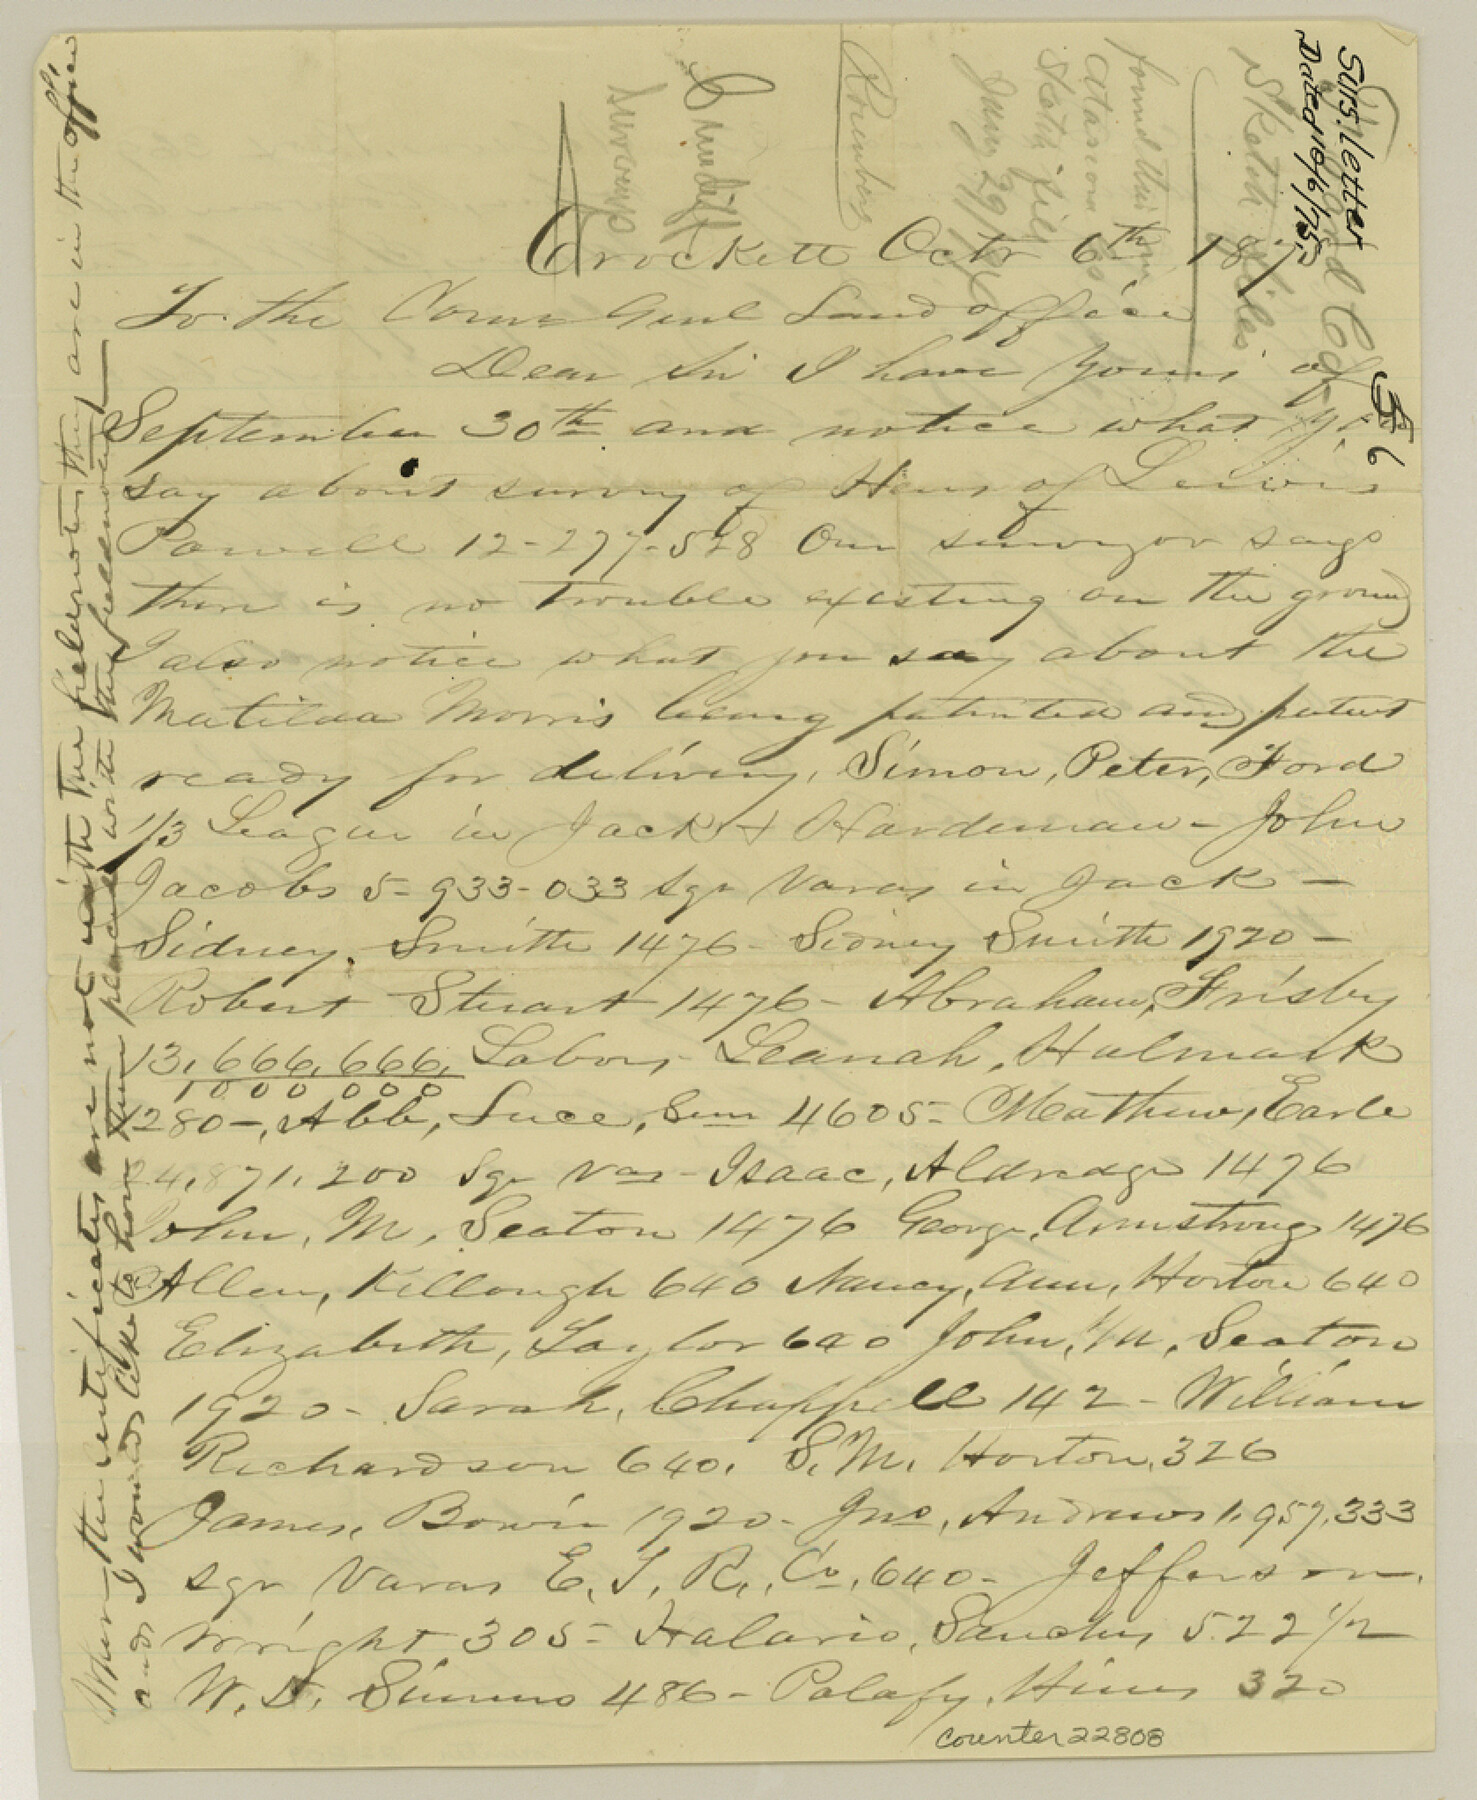 Surs. letter
Dated 10/6/75
Sketch Files
Found this in
Atascosa Co
Sketch files
Jany 29/
Rosenberg
56
Crockett Octr 6th 187
To the Comr Genl Land office
Dear Sir I have yours of
September 30th and notice what you
say about survey of Heirs of Lewis
Powell 12-277-528 Our surveyor says
there is no trouble existing on the ground
I also notice what you say about the
Matilda Morris being patented and patent
ready for delivery, Simon, Peter, Ford
1/3 League in Jack & Hardeman - John
Jacobs 5-933-033 sqr Varas in Jack -
Sidney, Smith 1476 - Sidney Smith 1920 -
Robert Stuart 1476 - Abraham, Frisby
13,666,666, Labors - Leanah, Halmark
1000000
1280-, Abb, Luce, Senr 4605 - Mathew, Earle
24,871,200 Sqr Vas - Isaac, Aldredge 1476
John, M, Seaton 1476 George, Armstrong 1476
Allen, Killough 640 Nancy, Ann, Horton 640
Elizabeth, Taylor 640 John, M, Seaton
1920 - Sarah, Chappell 142 - William
Richardson 640, S. M. Horton, 326
James, Bowie 1920 - Jno, Andrews 1,957,333
sqr Varas E. T. R., Co, 640 - Jefferson,
Wright 305 - Halario, Sanches 522 1/2
W. D. Simms 486 - Palafy, Hines 320
When the certificates are not with the fieldnotes they are in the office
and I would like to have them placed with the fieldnotes
counter 22808